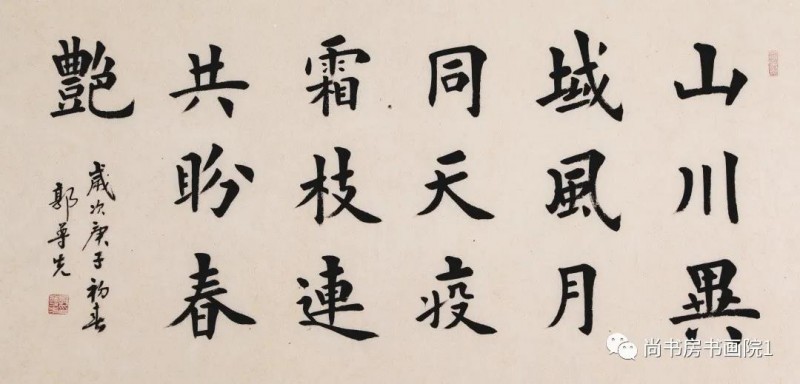 山川異
域風月
同天疫
霜枝連
共盼春
艶
歲次庚子初春
郭尊先
尚书房书画院1